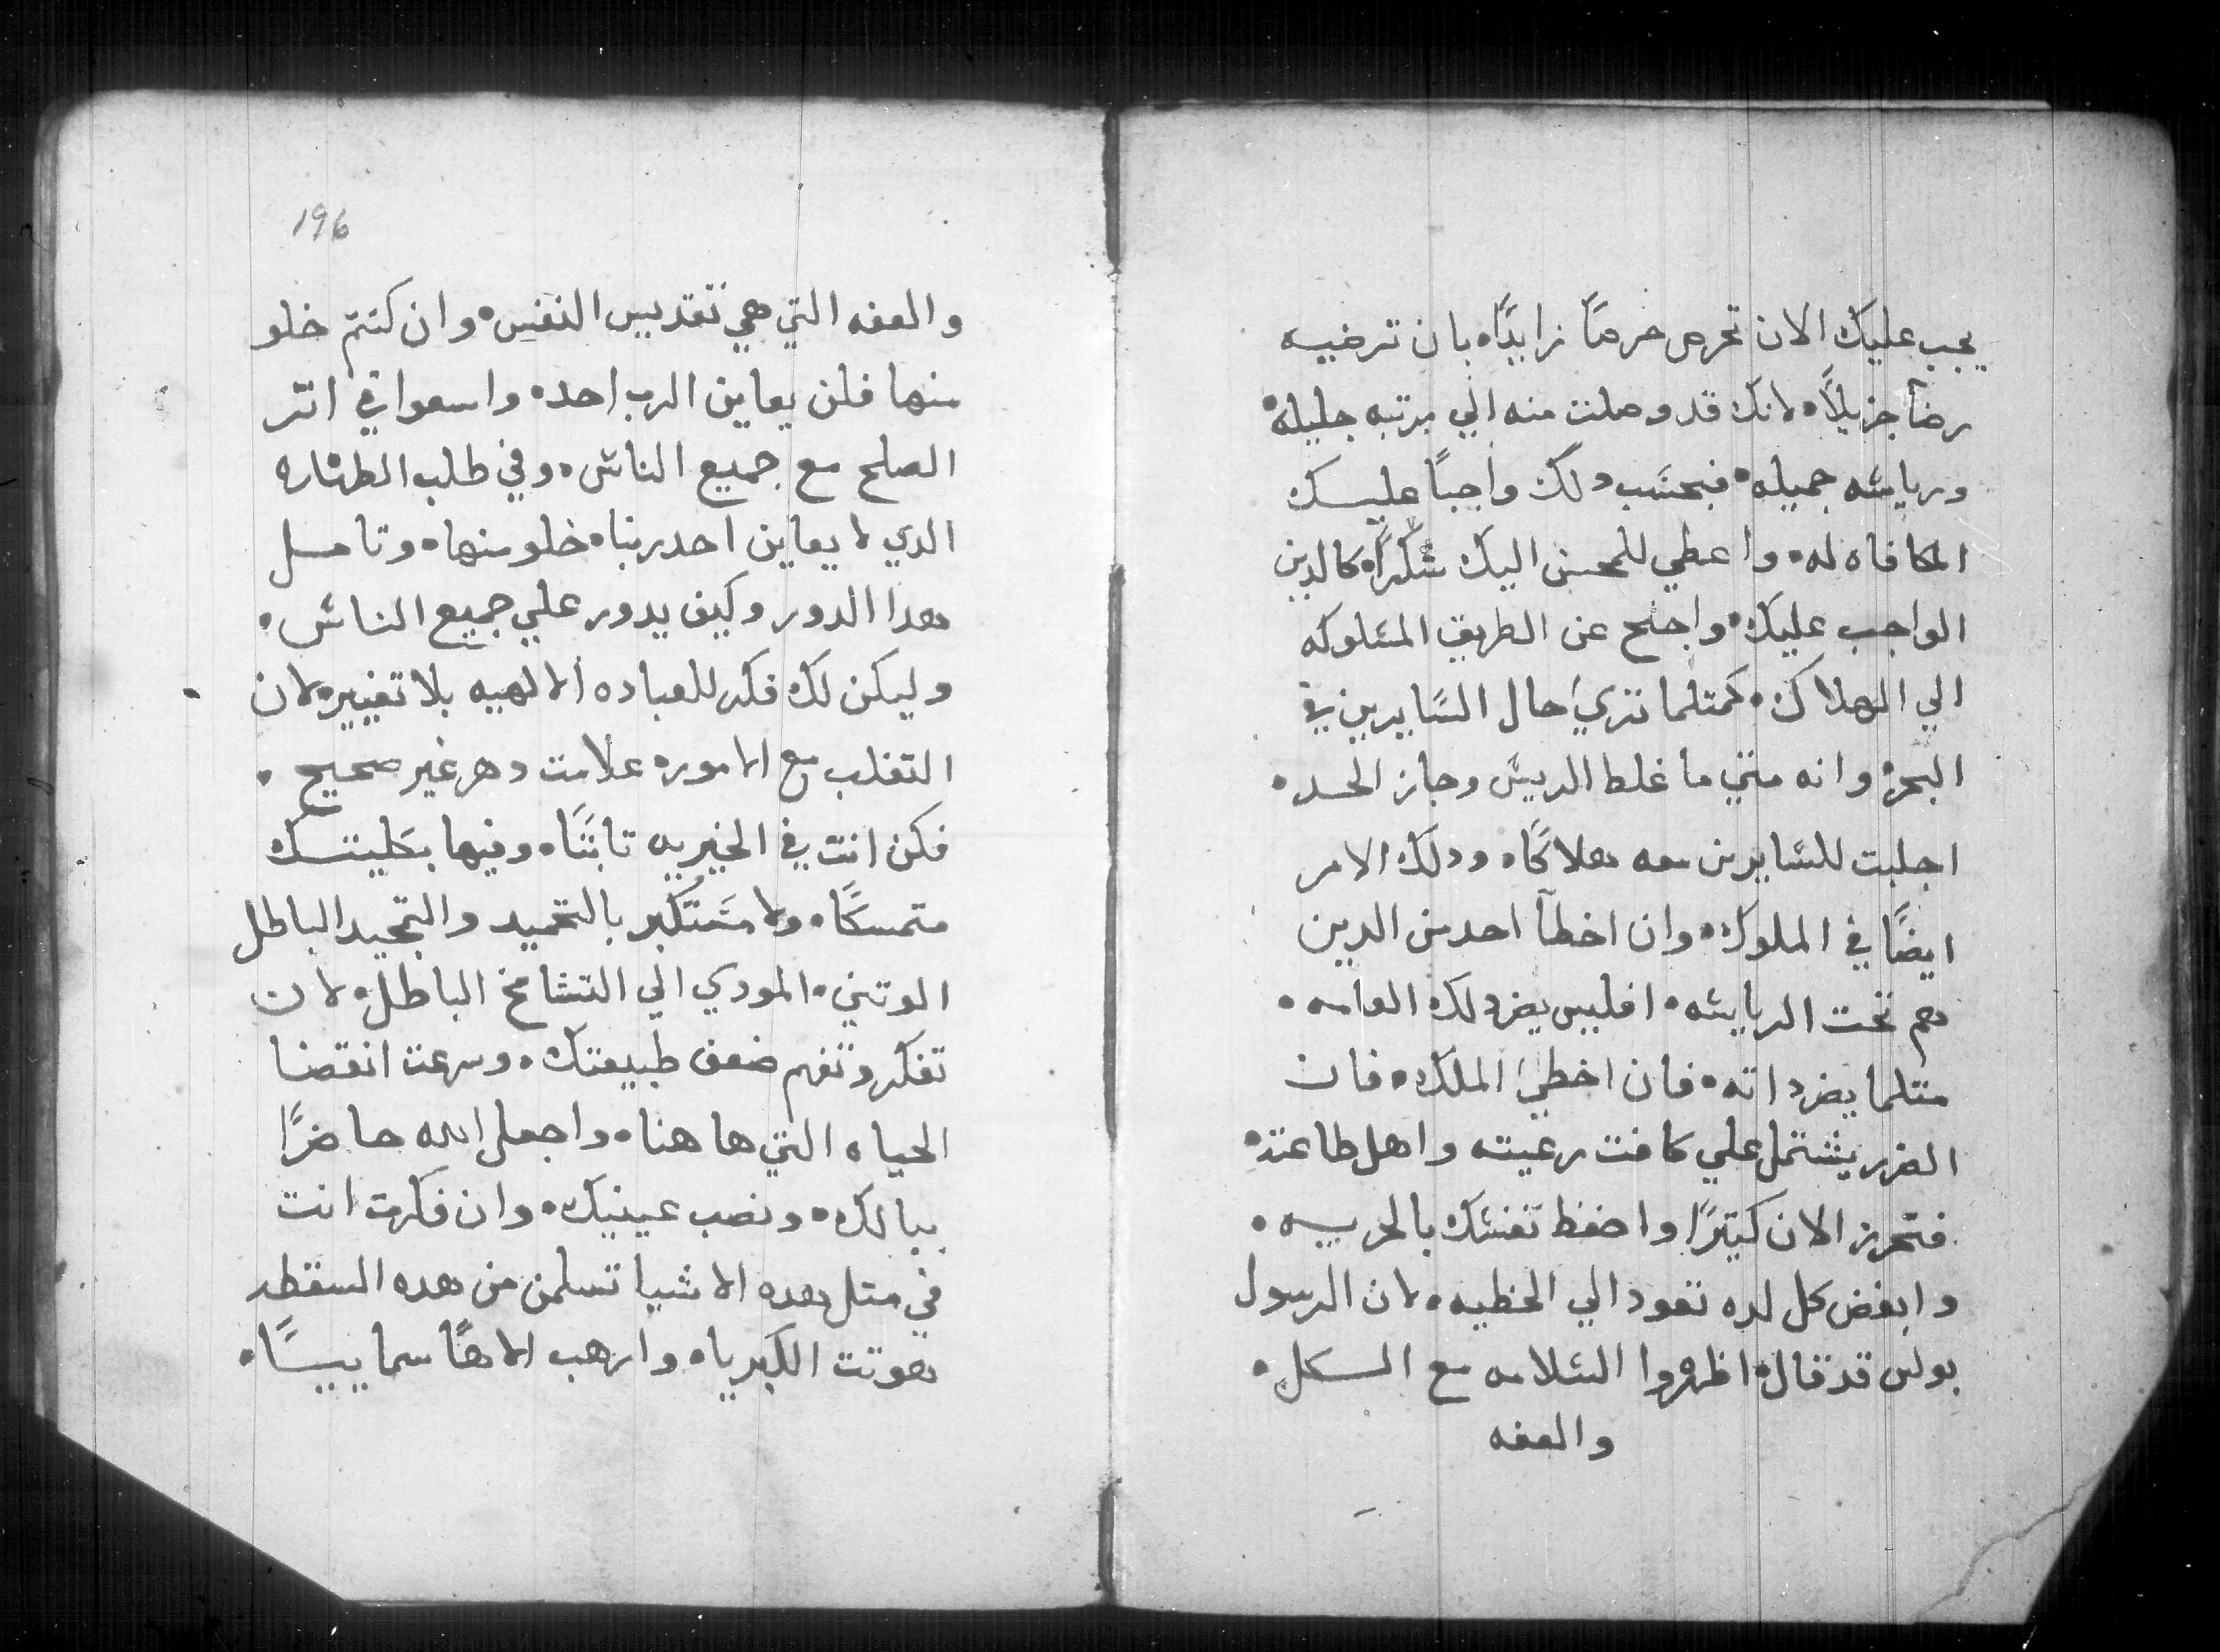 يجب عليك الان تحرص حرصًا زايدًا • بان ترضيه
رضاً جزيلاً • لانك قد وصلت منه الي مرتبه جليله •
وريايسه جميله • فبحسَب دلك واجبًا عليك
المكافاه له • واعطي للمحسن اليك شكرًا • كالدين
الواجب عليك • واجنح عن الطريق المسلوكه
الي الهلاك • كمتلما تري حال السَايرين في
البحر • وانه متي ما غلط الريس وجاز الحد •
اجلبت للسايرين معه هلاكًا • ودلك الامر
ايضًا في الملوك • وان اخطآ احد من الدين
هم تحت الريايسه • افليس يضر دلك العامه •
متلما يضر داته • فان اخطي الملك • فان
الضرر يشتمل علي كافت رعيته واهل طاعته •
فتحرز الان كتيرًا واحفظ نفسك بالحريه •
وابغض كل لده تقود الي الخطيه • لان الرسول
بولس قد قال • اظهروا السلامه مع الكل •
والعفه
196
والعفه التي هي تقديس النفس • وان كنتم خلو
منها فلن يعاين الرب احد • واسعوا في اتر
الصلح مع جميع الناس • وفي طلب الطهاره
الدي لا يعاين احد ربنا • خلو منها • وتامل
هدا الدور وكيف يدور علي جميع الناس •
وليكن لك فكر للعباده الالهيه بلا تغيير • لان
التقلب مع الامور • علامت دهر غير صحيح •
فكن انت في الخيريه تابتًا • وفيها بكليتك
متمسكًا • ولا مستكبر بالتحميد والتمجيد الباطل
الوتني • المودي الي التشامخ الباطل • لان
تفكر وتفهم ضعف طبيعتك • وسرعت انقضا
الحياه التي هاهنا • واجعل الله حاضرًا
ببالك • ونصب عينيك • وان فكرت انت
في متل هده الاشيا تسلمن من هده السقطه
هوتت الكبريا • وارهب الاهًا سماييًا •